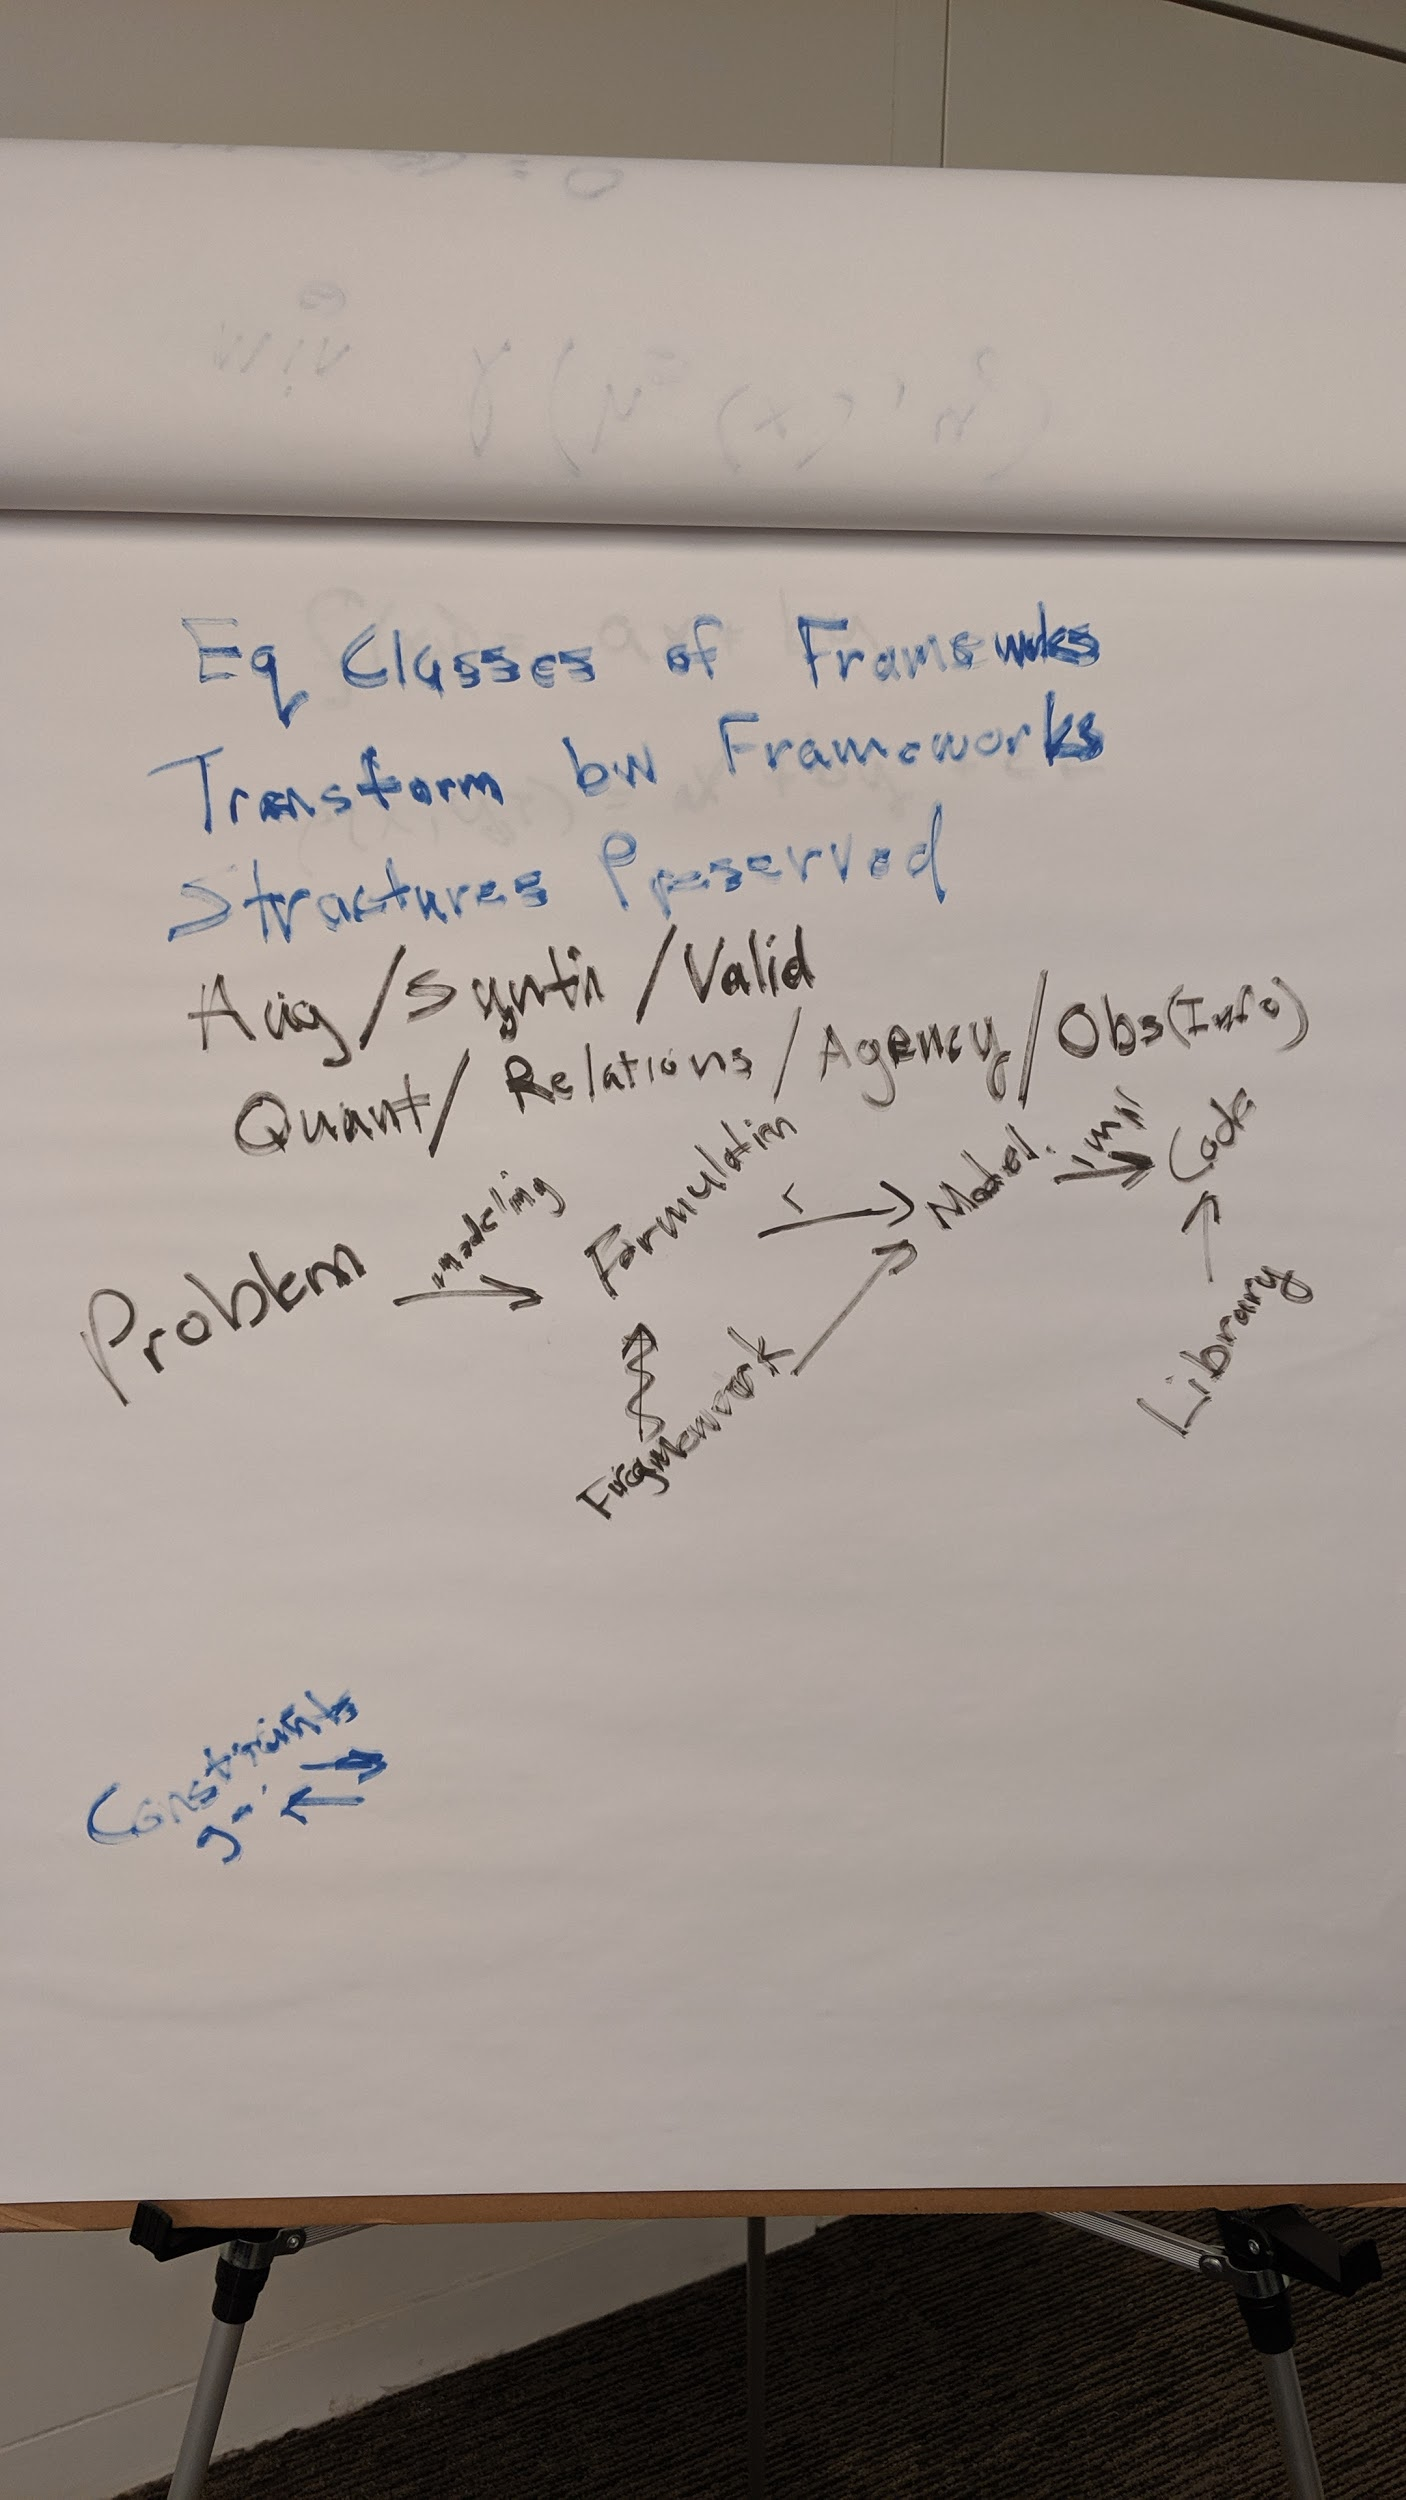 Eq Classes of Framewoks
Transform bw Frameworks
Structures Preserved
Aug/Synth/Valid
Quant/Relations/Agency/Obs(Info)
Problem modeling Formulation Model impl Code
Framework Library
Constraints